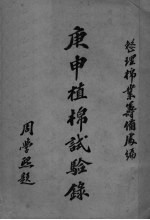 整理棉業籌備處編
庚申植棉試驗錄
周學熙題